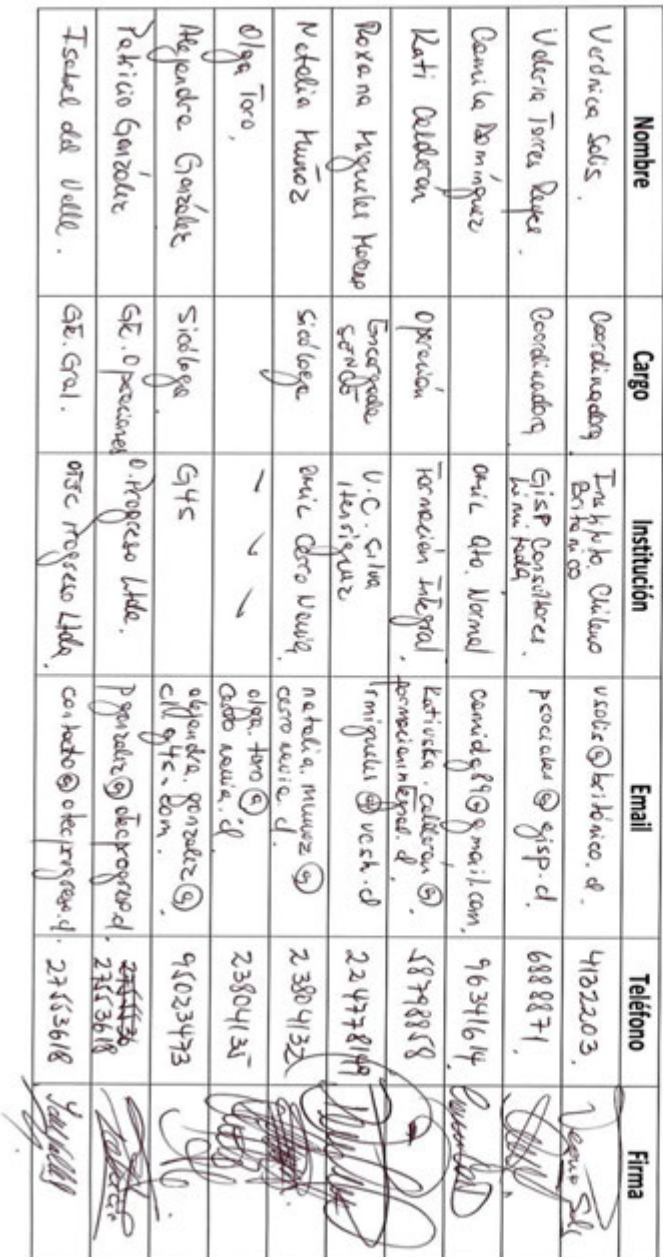 Nombre Cargo Institución Email Teléfono Firma
Verónica Solis. Coordinadora Instituto Chileno Británico vsolis@británico.cl 4132203.
Valeria Torres Reyes. Coordinadora Gisp Consultores Limitada psociales@egisp.cl 6888871.
Camila Domínguez OMIL Qta. Normal camidg89@gmail.com. 96341614.
Kati Calderon Operación Formación Integral. Katiuska.calderon@formacionintegral.cl. 58798858
Roxana Migueles Encargada SENCE U.C. Silva Henriquez rmigueles@ucsh.cl
Natalia Muñoz Sicóloga OMIL Cerro Navia. natalia.munoz@cerronavia.cl. 23804132
Olga Toro, olga.toro@cerronavia.cl 23804135
Alejandra González Sicóloga G4S alejandra.gonzalez@cl.g4s.com. 95023473
Patricio González Gte. Operaciones O. Progreso Ltda. pgonzalez@otecprogreso.cl. 27553618
Isabel del Valle. Gte. Gral. OTEC Progreso Ltda. contacto@otecprogreso.cl. 27553618